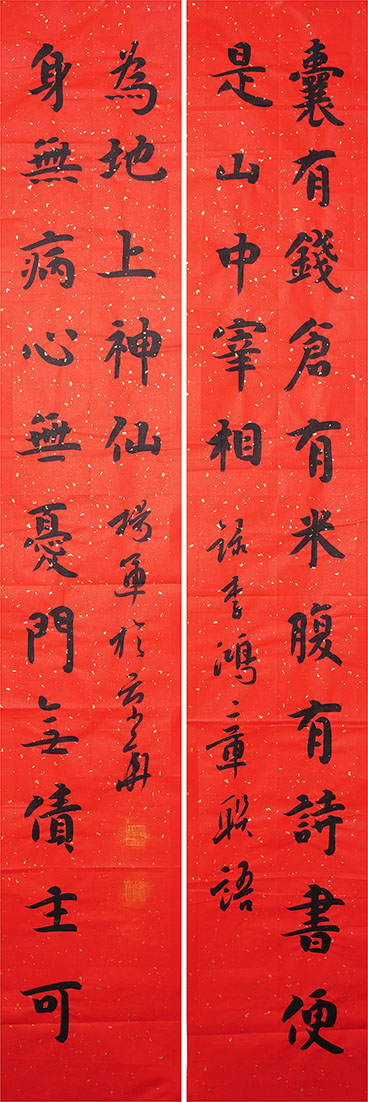 囊有錢倉有米腹有詩書便
是山中宰相 錄李鴻章聯語
身無病心無憂門無債主可
為地上神仙 楊軍於京華